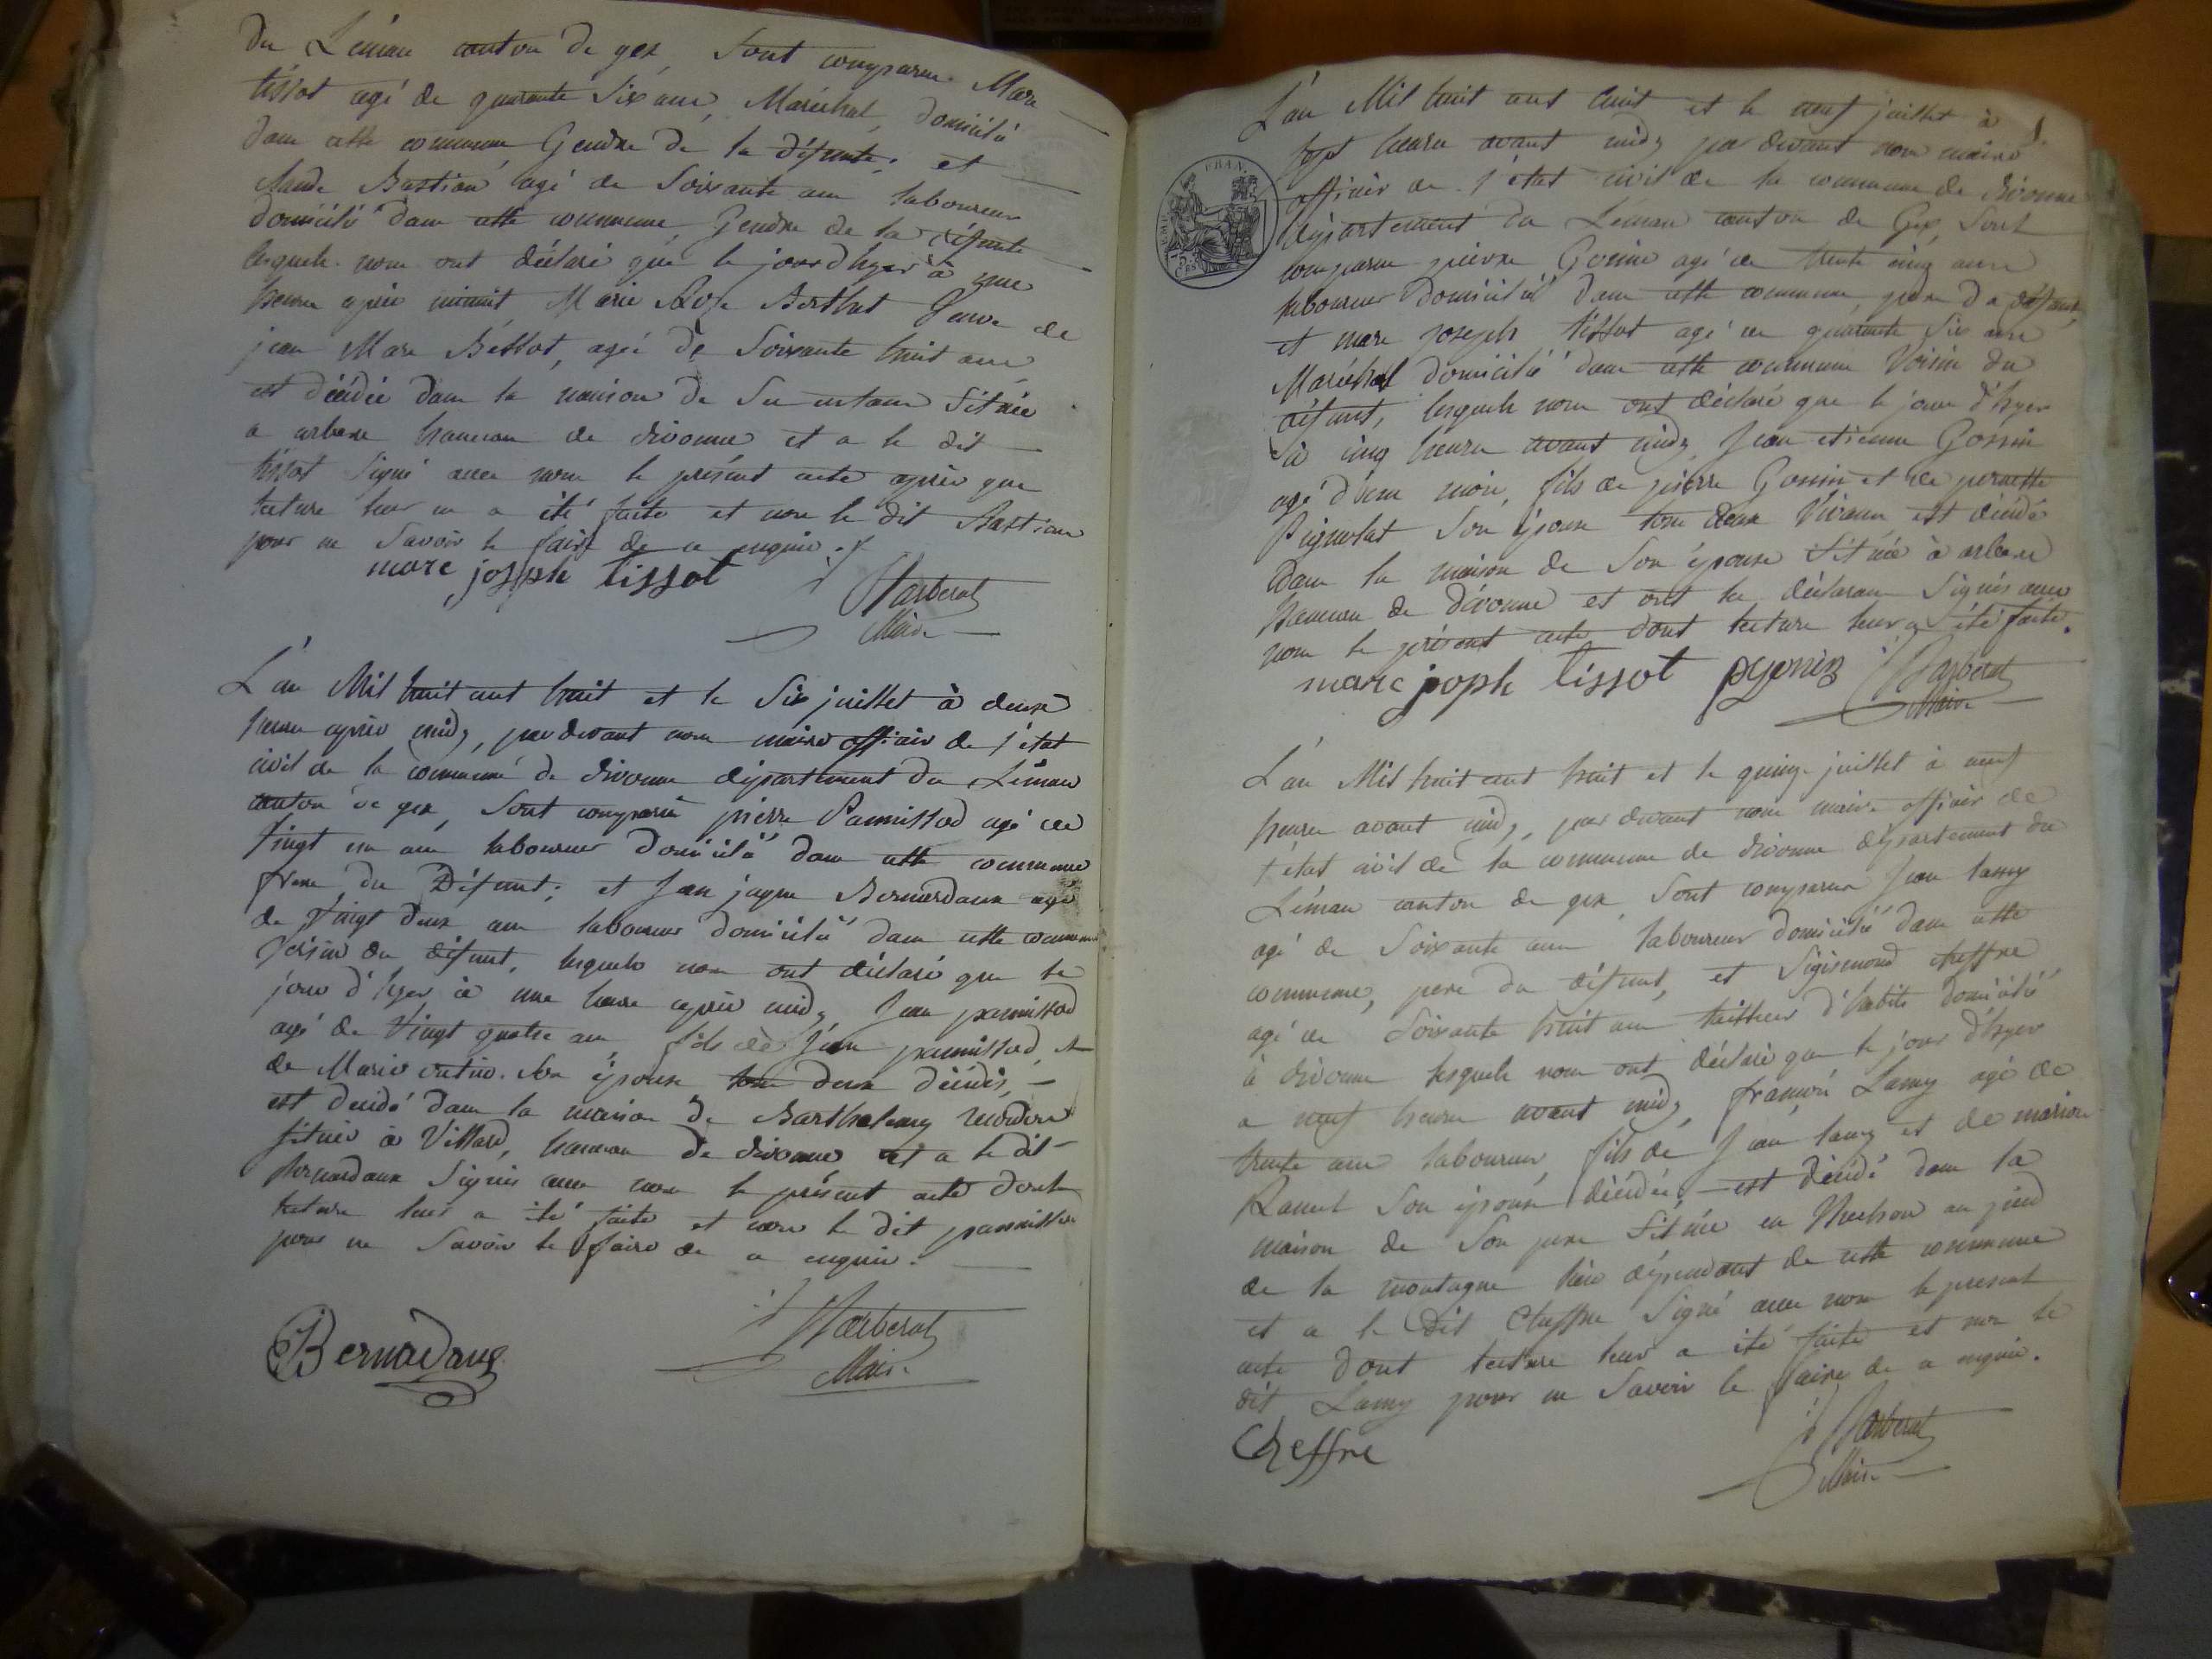 Du Léman canton de gex, Sont comparu Marc
tissot agé de quarante Six ans, Maréchal, domicilié
dans cette commune Gendre de la défunte; et
claude Bastian agé de Soixante ans laboureur
domicilié dans cette commune, Gendre de la défunte
lesquels nous ont déclaré que le jour d'hyer à une
heure après minuit, Marie Berthet Veuve de
jean Marc agée de Soixante huit ans
est décédée dans la maison de Située
a arbere hameau de divonne et a le dit
tissot Signé avec nous le présent acte après que
lecture leur en a été faite et non le dit Bastian
pour ne Savoir le faire de ce enquis.
marc josph tissot
Maire
L'an Mil huit cent huit et le Six juillet à deux
heures après midy, par devant nous maire officier de l'état
civil de la commune de divonne département du Léman
canton de gex, Sont comparu pierre Pannissod agé de
Vingt un ans laboureur domicilié dans cette commune
frere du Défunt; et Jean jaque Bernardaux agé
de Vingt deux ans laboureur domicilié dans cette commune
Voisin du défunt, lesquels nous ont déclaré que le
jour d'hyer à une heure après midy Jean pannissod
agé de Vingt quatre ans fils de Jean pannissod, et
de Marie Son épouse tous deux décédés,
est décédé dans la maison de Barthelemy
Située à Villard, hameau de divonne et a le dit
Bernardaux Signés avec nous le présent acte dont
lecture leur a été faite et non le dit pannissod
pour ne Savoir le faire de ce enquis.
Bernadaux
Maire
L'an Mil huit cent huit et le neuf juillet à
Sept heures avant midy par devant nous maire
officier de l'état civil de la commune de divonne
département du Léman canton de Gex, Sont
comparu pierre Gonin agé de trente cinq ans
laboureur domicilié dans cette commune, pere du défunt,
et marc joseph tissot agé de quarante Six ans
Maréchal domicilié dans cette commune Voisin du
défunt, lesquels nous ont déclaré que le jour d'hyer
à cinq heures avant midy Jean etienne Gonin
agé d'un mois, fils de pierre Gonin et de pernette
Son épouse tous deux Vivans est décédé
dans la maison de Son épouse Située à arbere
hameau de divonne et ont les déclarans Signés avec
nous le présent acte dont lecture leur a été faite.
marc joph tissot pgonin
Maire
L'an Mil huit cent huit et le quinze juillet à neuf
heures avant midy, par devant nous maire officier de
l'état civil de la commune de divonne département du
Léman canton de gex, Sont comparu Jean Lamy
agé de Soixante ans laboureur domicilié dans cette
commune, pere du défunt, et Sigismond cheffre
agé de Soixante huit ans tailleur d'habits domicilié
à divonne lesquels nous ont déclaré que le jour d'hyer
a neuf heures avant midy, françois Lamy agé de
trente ans laboureur, fils de Jean Lamy et de marion
Ramel Son épouse décédée, est décédé dans la
maison de Son pere Située en au pied
de la montagne lieu dépendant de cette commune
et a le Dit Cheffre Signé avec nous le present
acte dont lecture leur a été faite et non le
dit Lamy pour ne Savoir le faire de ce enquis.
Cheffre
Maire